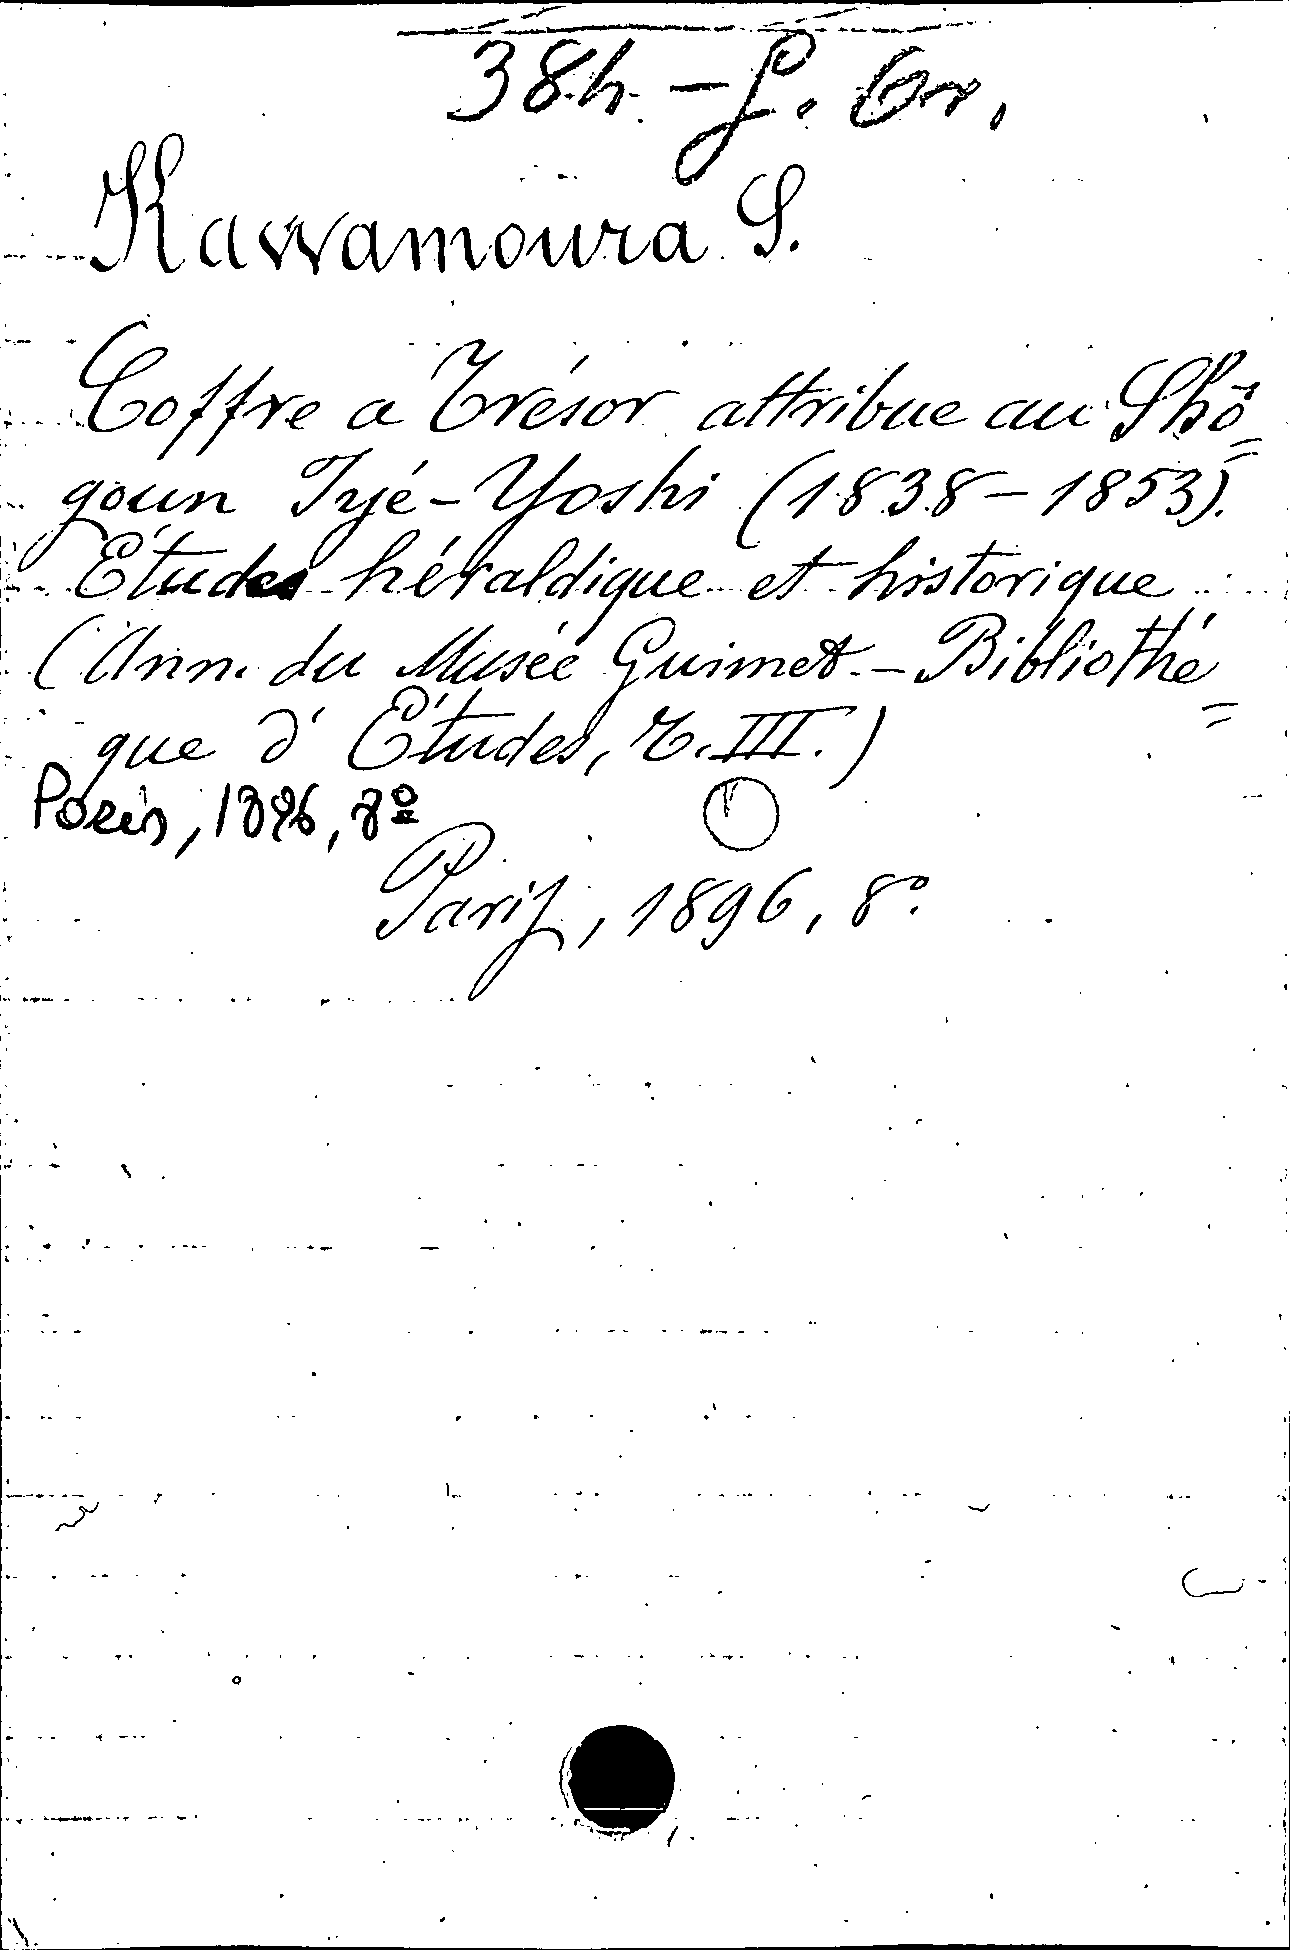 38h. - L. Or.
Kawamoura S.
Coffre a Trésor attribue au Shô=
goun Iyé-Yoshi (1838-1853).
Études héraldique et historique
(Ann. du Musée Guimet. - Bibliothé=
que d'Études, T. III.)
Paris, 1896, 8º
Paris, 1896, 8º.